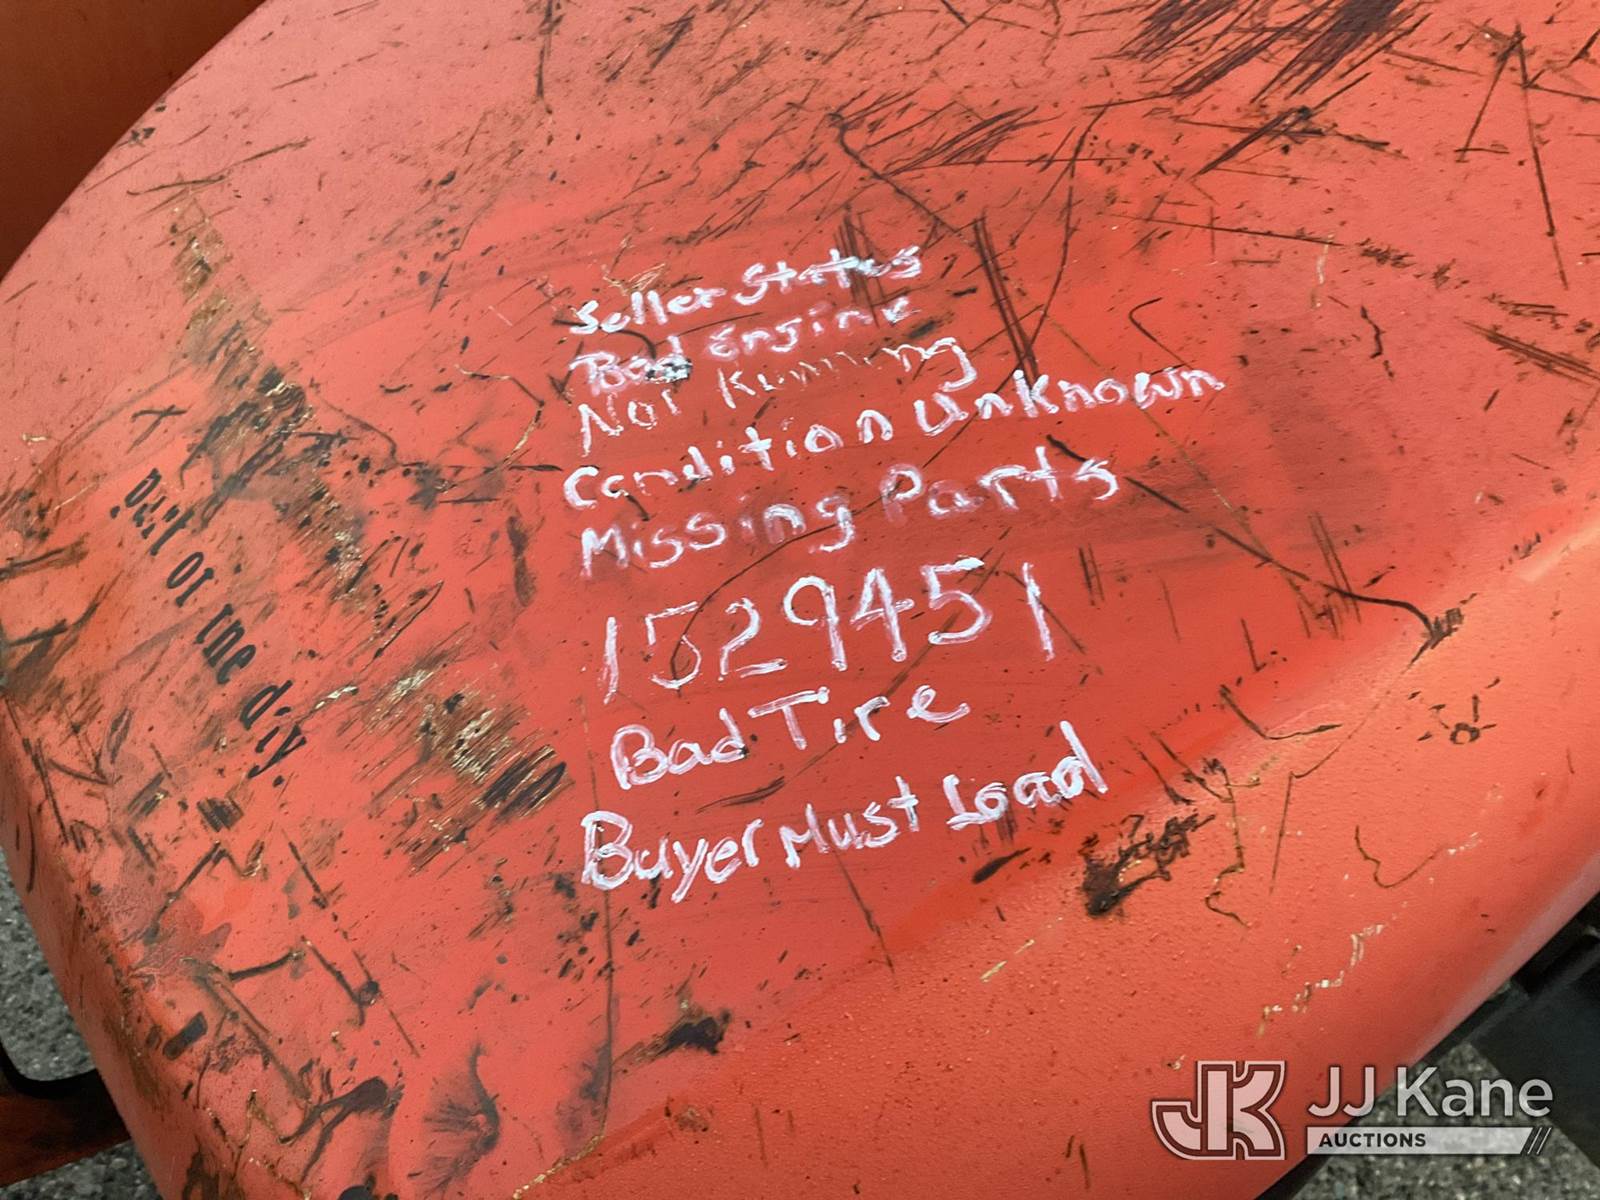 Seller States
Bad Engine
Not Running
Condition Unknown
Missing Parts
1529451
Bad Tire
Buyer Must Load
part of the day.
JK JJ Kane
AUCTIONS